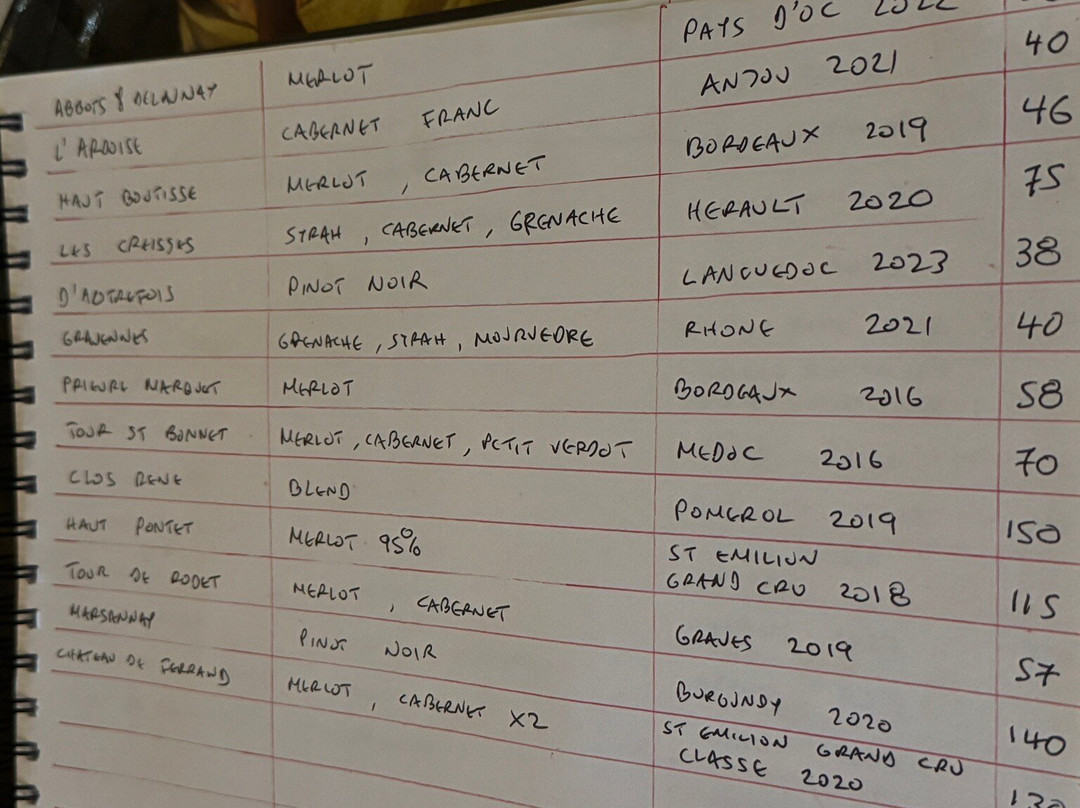 ABBOTS & DELAUNAY MERLOT PAYS D'OC 2022
L'ARDOISE CABERNET FRANC ANJOU 2021 40
HAUT BOUTISSE MERLOT, CABERNET BORDEAUX 2019 46
LES CREISSES SYRAH, CABERNET, GRENACHE HERAULT 2020 75
D'AUTREFOIS PINOT NOIR LANGUEDOC 2023 38
GRAVENNES GRENACHE, SYRAH, MOURVEDRE RHONE 2021 40
PRIEURE MARQUET MERLOT BORDEAUX 2016 58
TOUR ST BONNET MERLOT, CABERNET, PETIT VERDOT MEDOC 2016 70
CLOS RENE BLEND POMEROL 2019 150
HAUT PONTET MERLOT 95% ST EMILION
GRAND CRU 2018 115
TOUR DE RODET MERLOT, CABERNET GRAVES 2019 57
MARSANNAY PINOT NOIR BURGUNDY 2020 140
CHATEAU DE FERRAND MERLOT, CABERNET X2 ST EMILION GRAND CRU
CLASSE 2020